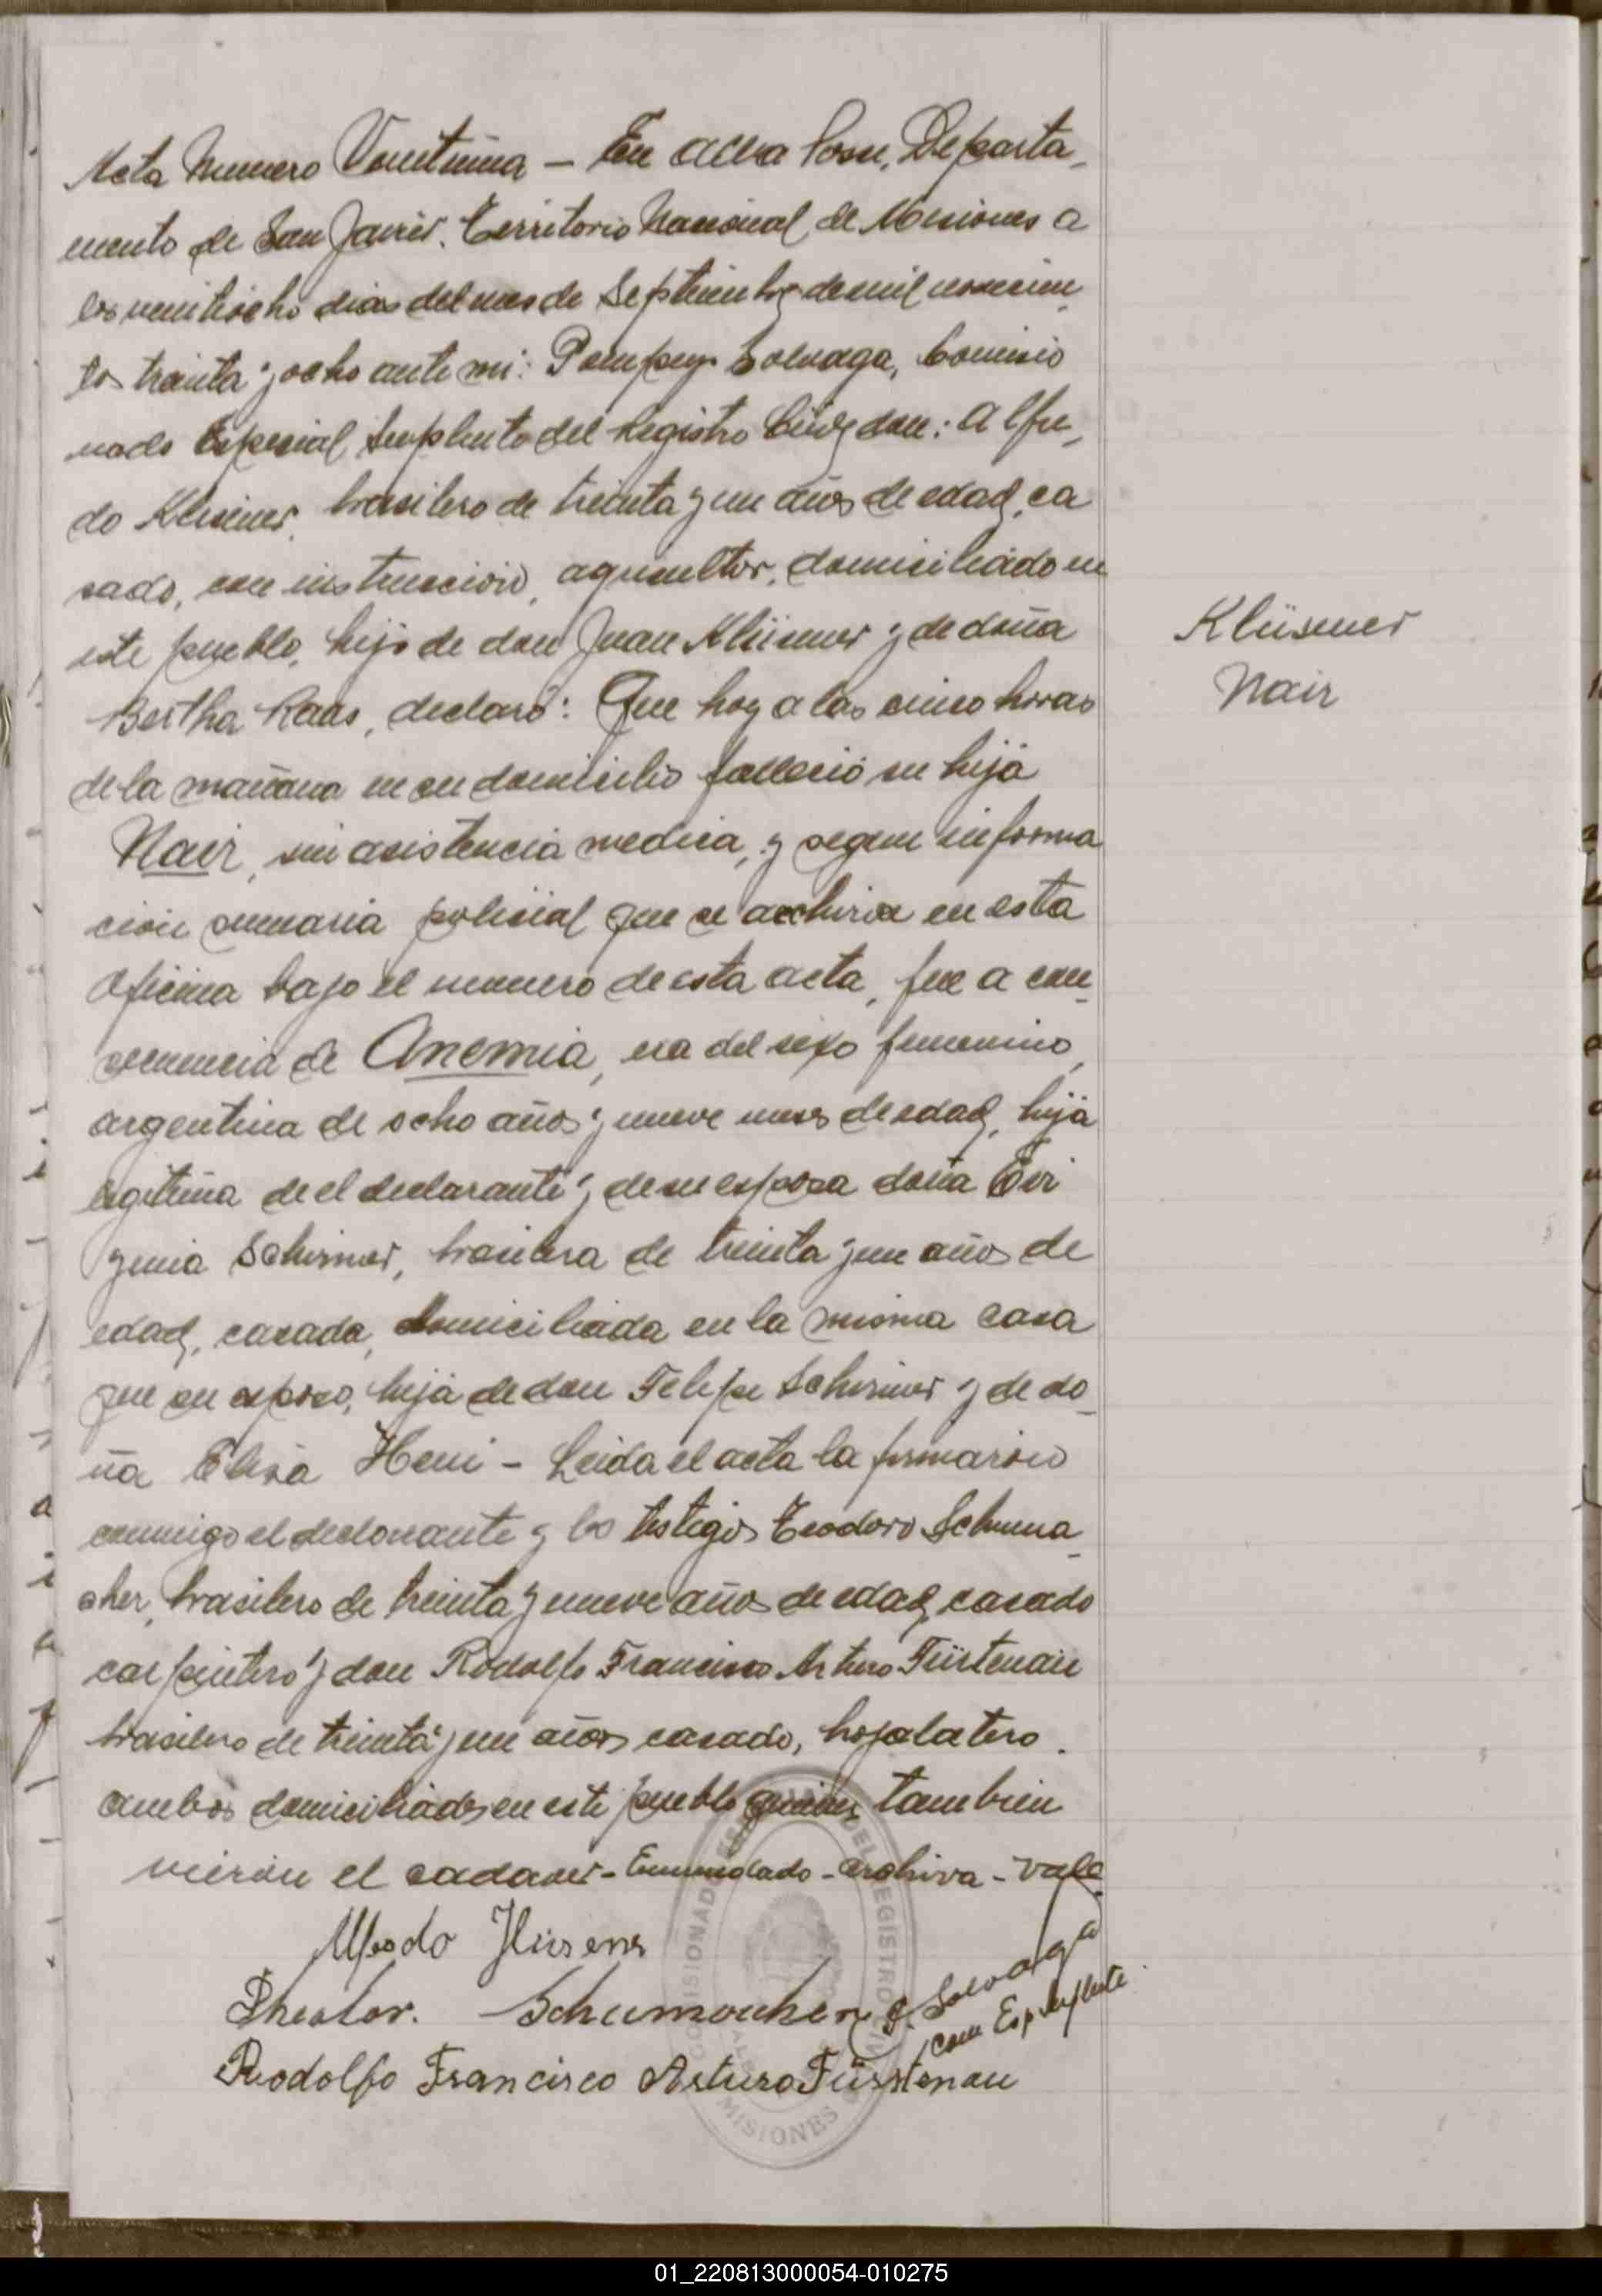 Acta Numero Veintiuna - En Alba Posse, Departa-
mento de San Javier, Territorio Nacional de Misiones a
los veintiocho dias del mes de Septiembre de mil novecien-
tos treinta y ocho ante mi: Pompeyo Solvaga, Comisio
nado Especial Suplente del Registro Civil, don: Alfre-
do Klüsener, brasilero de treinta y un años de edad, ca
sado, con instruccion, agricultor, domiciliado en
este pueblo, hijo de don Juan Klüsener y de doña
Bertha Raas, declaró: Que hoy a las cinco horas
de la mañana en su domicilio fallecio su hija
Nair, sin asistencia medica, y segun informa
ción sumaria policial que se archiva en esta
Oficina bajo el numero de esta acta, fue a con-
secuencia de Anemia, era del sexo femenino,
argentina de ocho años y nueve meses de edad, hija
legitima de el declarante y de su esposa doña
Schirmer, brasilera de treinta y un años de
edad, casada, domiciliada en la misma casa
que su esposo, hija de don Felipe Schirmer y de do-
ña Elisa - Leida el acta la firmaron
conmigo el declarante y los testigos Teodoro Schuma-
cher, brasilero de treinta y nueve años de edad, casado
carpintero y don Rodolfo Francisco Arturo Fürstenau
brasilero de treinta y un años casado, hojalatero.
ambos domiciliados en este pueblo quienes tambien
vieron el cadaver - Enmendado - archiva - Vale
Alfredo Klüsener
Theodor. Schumacher
P. Solvaga
Com Esp Suplente
Rodolfo Francisco Arturo Fürstenau
Klüsener
Nair
COMISIONADO DEL REGISTRO
MISIONES
01_220813000054-010275